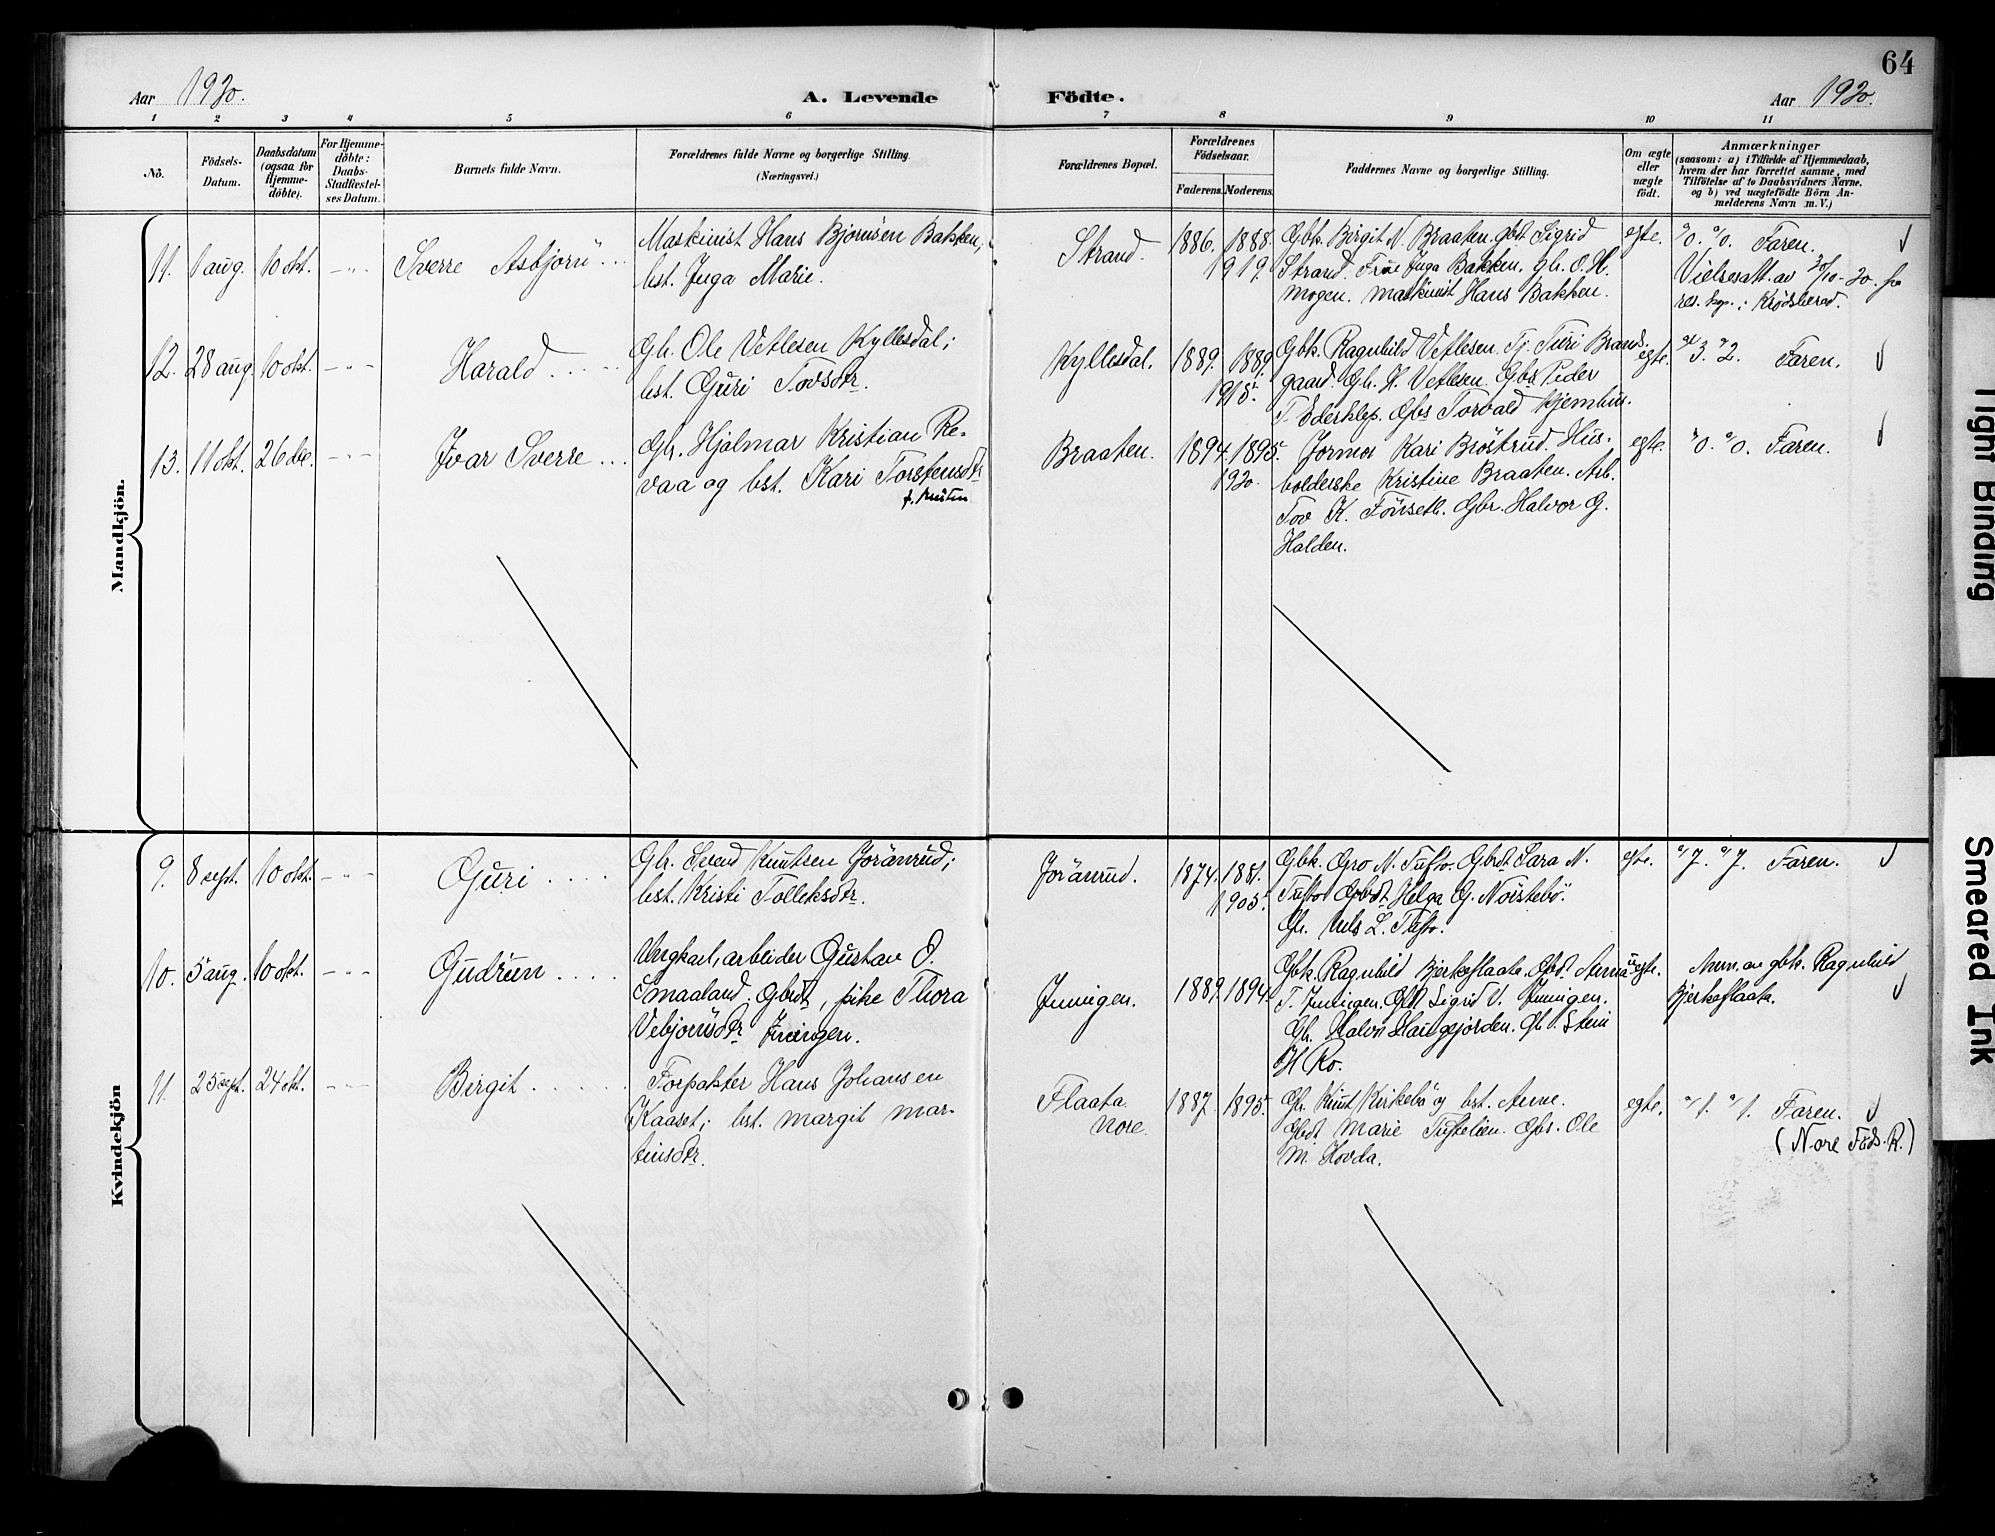 64
Aar 1920.
A. Levende Födte.
Aar 1920.
1 2 3 4 5 6 7 8 9 10 11
No.
Födsels-Datum.
Daabsdatum (ogsaa for Hjemme-döbte).
For Hjemme-döbte: Daabs-Stadfæstel-ses Datum.
Barnets fulde Navn.
Forældrenes fulde Navne og borgerlige Stilling.
(Næringsvei.)
Forældrenes Bopæl.
Forældrenes Födselsaar.
Faderens. Moderens.
Faddernes Navne og borgerlige Stilling.
Om ægte eller uægte födt.
Anmærkninger
(saasom: a) i Tilfælde af Hjemmedaab, hvem der har forrettet samme, med Tilföielse af to Daabsvidners Navne, og b) ved uægtefödte Börn An-melderens Navn m. V.)
Mandkjön.
11. 1 aug. 10 okt. -"- Sverre Asbjørn
Maskinist Hans Bjørnsen Bakken,
bst. Inga Marie.
Strand. 1886. 1888.
1919.
Gbk. Birgit N. Braaten. gbdt Sigrid
Strand. Frue Inga Bakken. Gbr. O. H.
Mogen. Maskinist Hans Bakken.
egte. 0. 0. Faren.
Vielsesatt. av 20/10-20. fra
res. kap. i Krødsherad.
12. 28 aug. 10 okt. -"- Harald
Gbr. Ole Vetlesen Kyllesdal;
bst. Guri Tovsdtr.
Kyllesdal. 1889. 1889.
1915.
Gbk. Ragnhild Vetlesen. Tj. Turi Brands-
gaard. Gbr. H. Vetlesen. Gbs Peder
T. Ederklep. Gbs Torvald Kjemhus.
egte. 3. 2. Faren.
13. 11 okt. 26 dec. -"- Ivar Sverre
Gbr. Hjalmar Kristian Re-
vaa og bst. Kari Torstensdtr
Braaten. 1894. 1895.
1920.
Jormor Kari Brøstrud. Hus-
bolderske Kristine Braaten. Arb.
Tov K. Fönset. Gbr. Halvor G.
Halden.
egte. 0. 0. Faren.
Kvindekjön
9. 8 sept. 10 okt. -"- Guri
Gbr. Svend Knutsen Joranrud;
bst. Kristi Tolleksdtr.
Joranrud. 1874. 1881.
1905.
Gbk. Gro N. Tufto. Gbdt Sara N.
Tufto. Gbdt Helga G. Norstebö.
Gbr. Nils L. Tufto.
egte. 7. 7. Faren.
10. 5 aug. 10 okt. -"- Gudrun
Ungkarl, arbeider Gustav O.
Smaaland. Gbdt, pike Thora
Vebjørnsdtr Juvingen.
1889. 1894.
Gbk. Ragnhild Bjerkeflaata. Gbdt. Anna
uegte. Anm. av gbk. Ragnhild
Bjerkeflaata.
H Ro.
11. 25 sept. 24 okt. -"- Birgit
Forpakter Hans Johansen
Kaaset; bst. Margit Mar-
tinsdtr.
Flaata
Nore. 1887. 1895.
Gbr. Knut Kirkebö og bst. Anne.
Gbdt. Marie Tuftelien. Gbs. Ole
M. Hovda.
egte. 1. 1. Faren.
(Nore Föds. R.)
Tight Binding
Smeared Ink